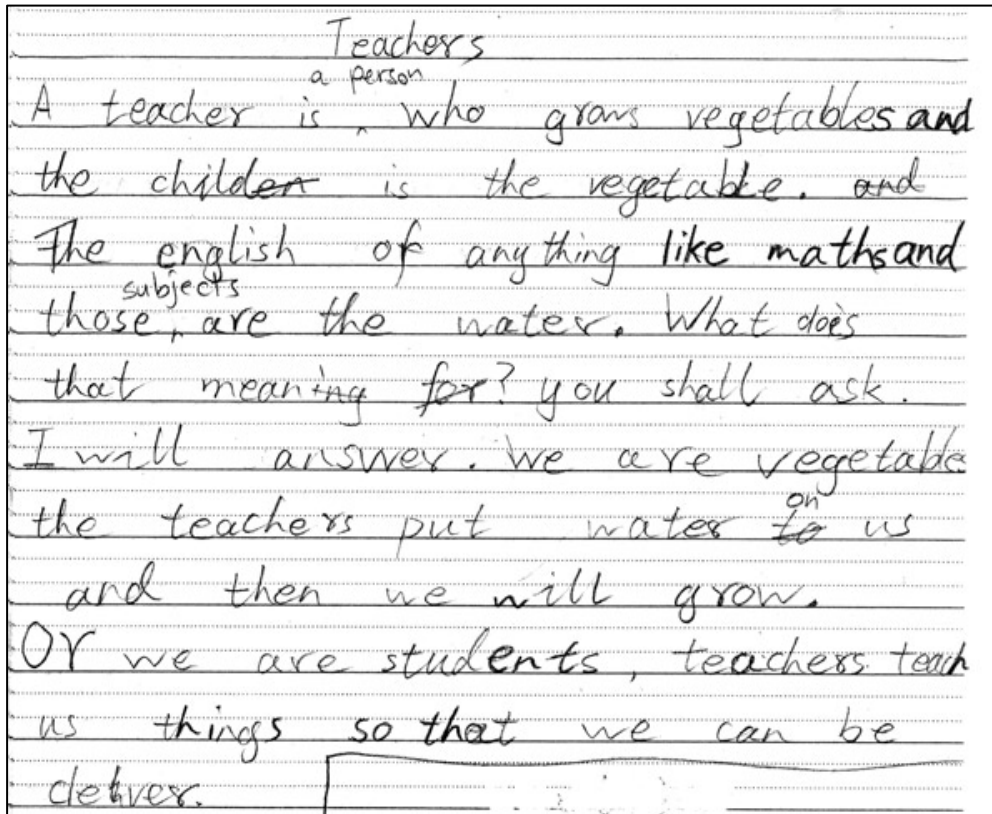 Teachers
a person
A teacher is ^ who grows vegetables and
the child~~en~~ is the vegetable. ~~and~~
The english of anything like maths and
subjects
those ^ are the water. What does
that mean~~ing~~ ~~for~~? you shall ask.
I will answer. We are vegetable
on
the teachers put water ~~to~~ us
and then we will grow.
Or we are students, teachers teach
us things so that we can be
clehver.